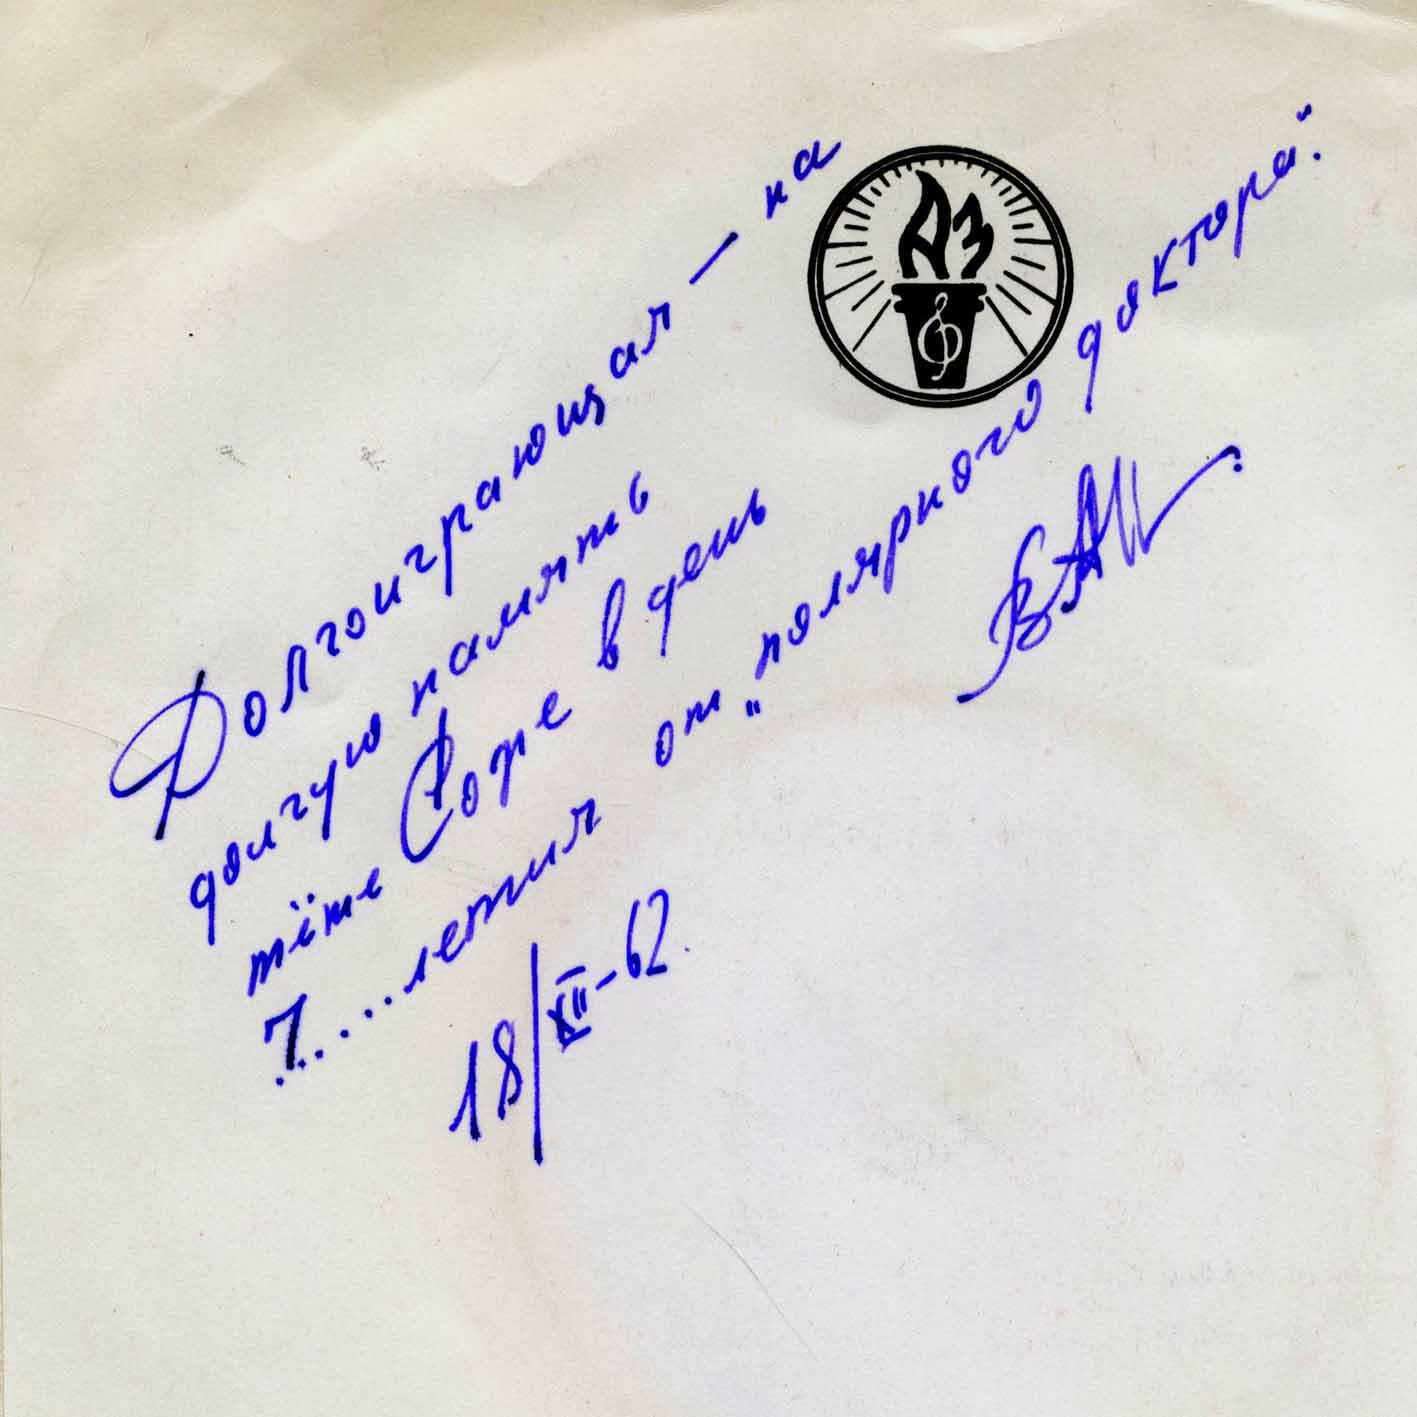 Долгоиграющая — на
долгую память
тёте Соре в день
7.....летия от „полярного доктора“.
18/XII-62.
АЗ